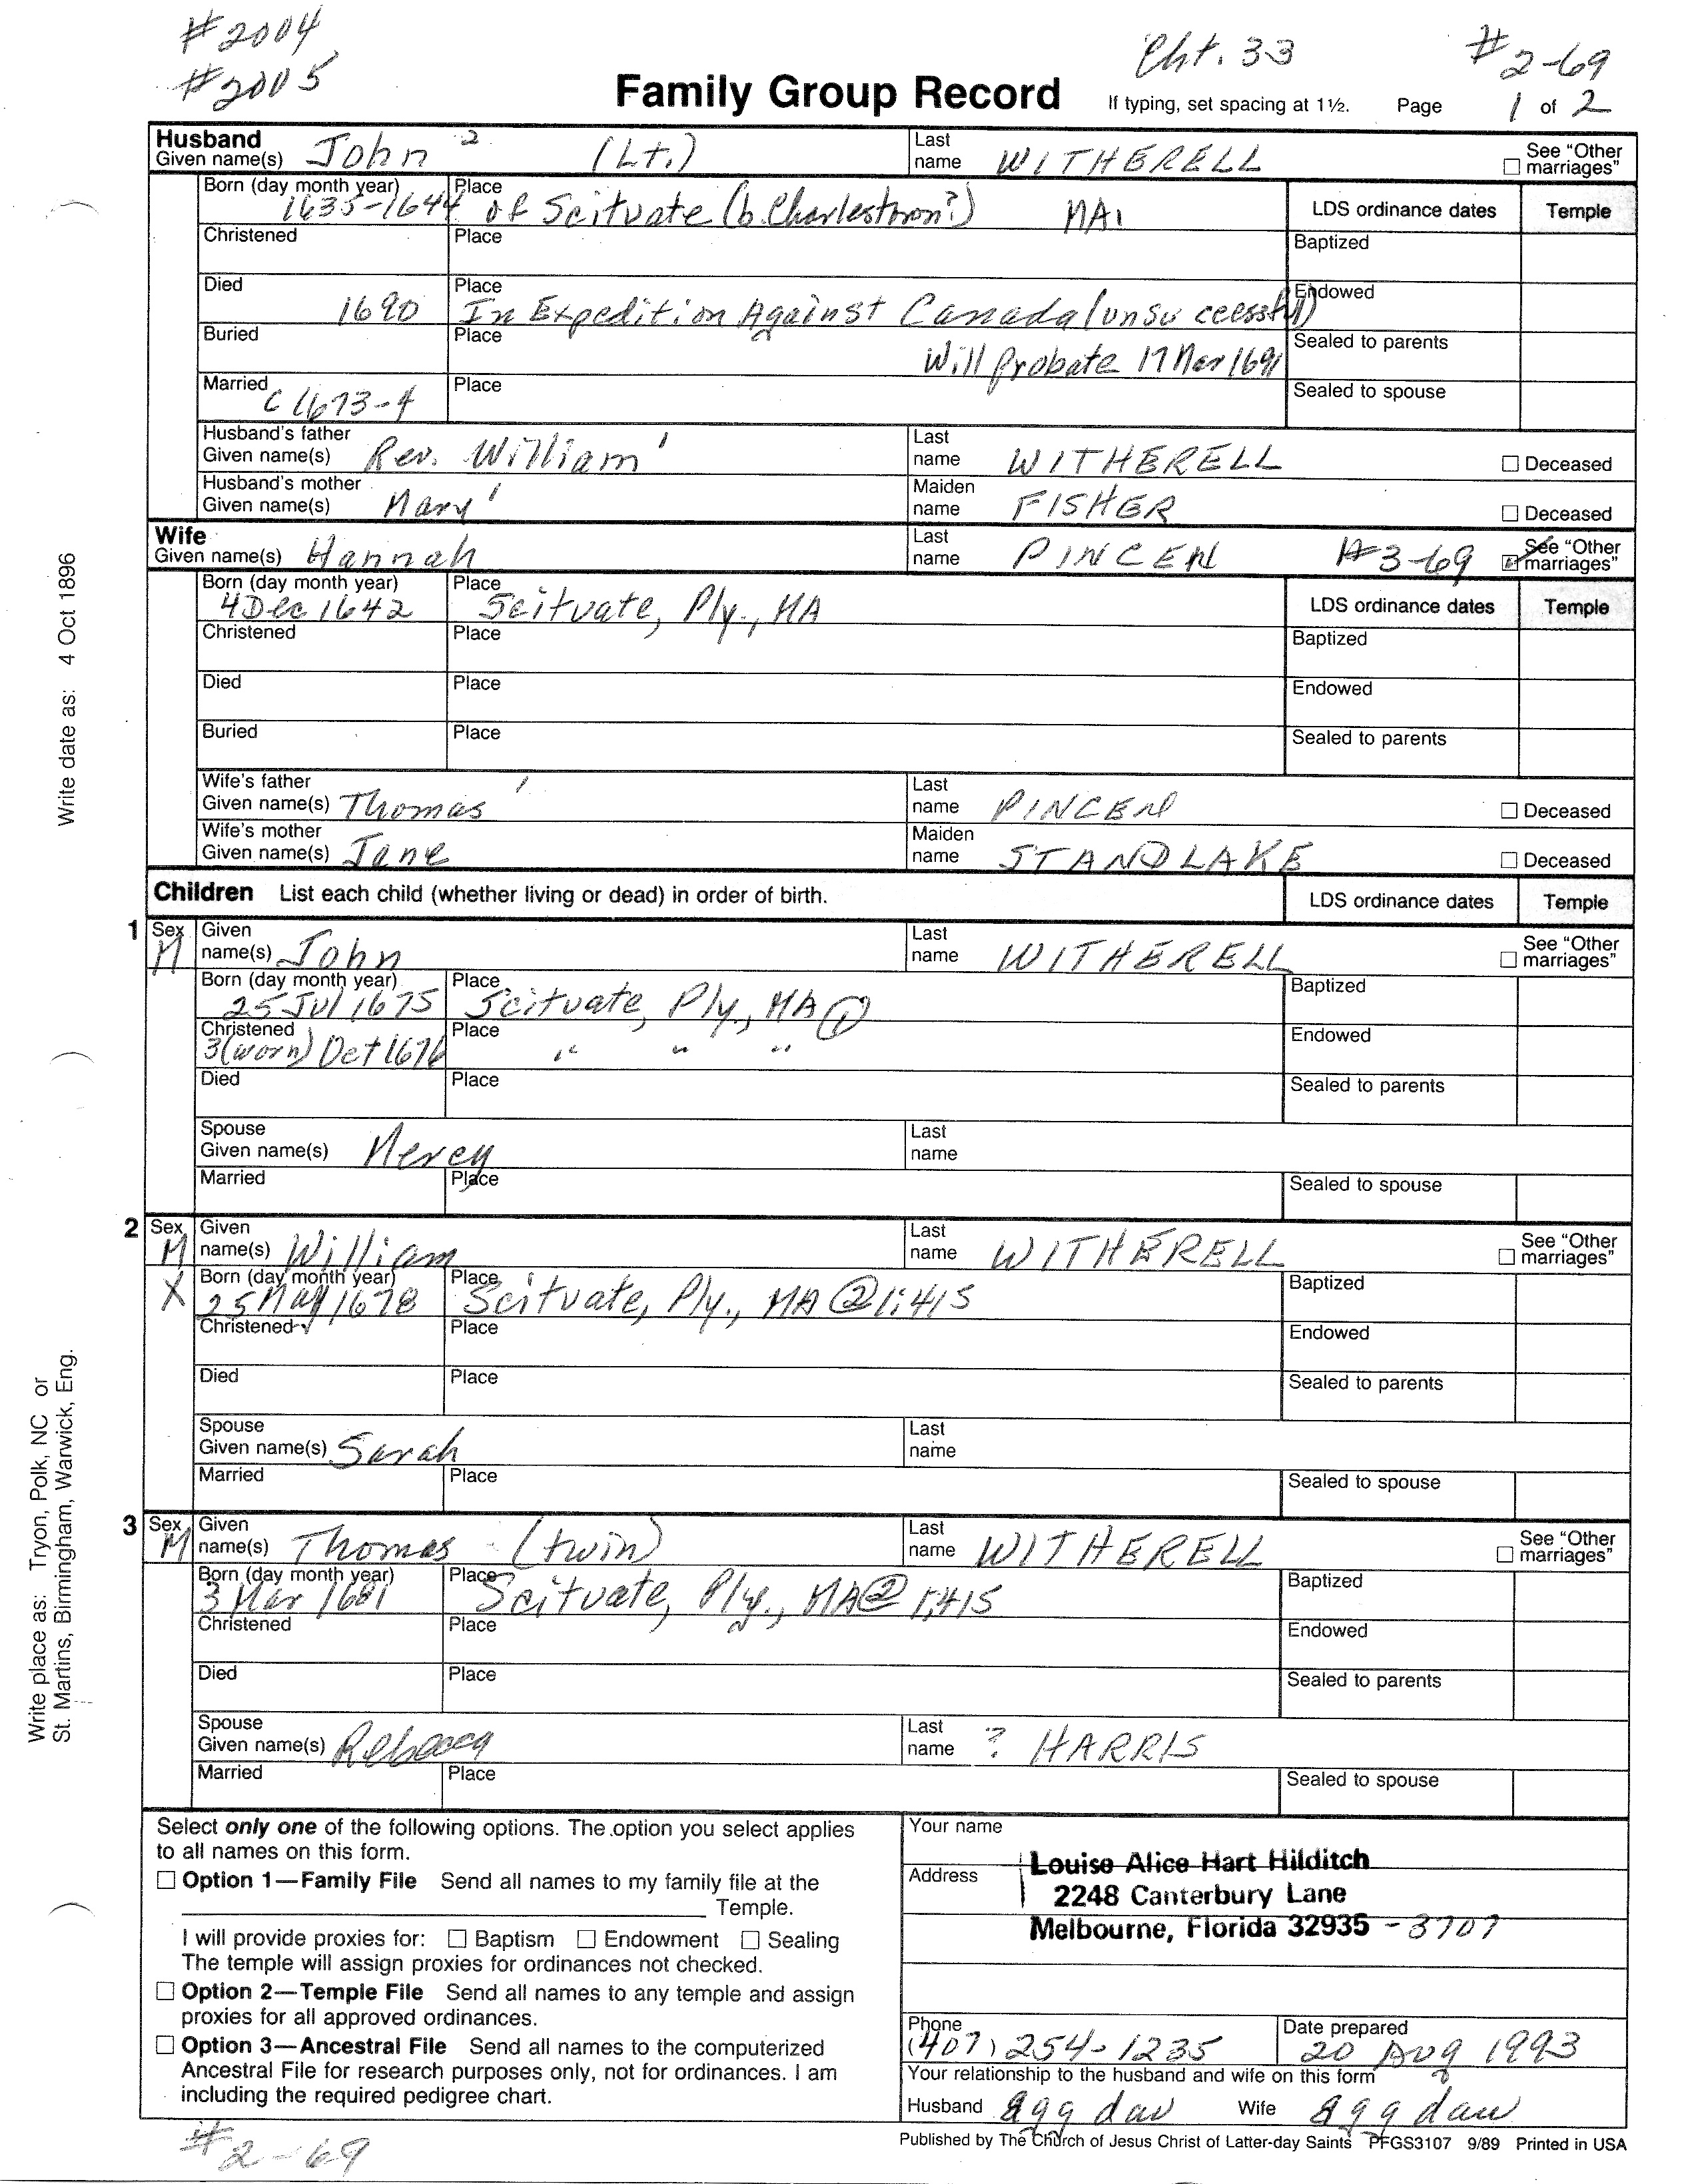 #2004
#2005
Cht. 33
#2-69
Family Group Record
If typing, set spacing at 1½. Page 1 of 2
Husband
Given name(s) John 2 (Lt.)
Last name WITHERELL
☐ See "Other marriages"
Born (day month year) 1635-1644
Place of Scituate (b. Charlestown?) MA
LDS ordinance dates
Temple
Christened
Place
Baptized
Died 1690
Place In Expedition Against Canada (unsuccessful)
Endowed
Buried
Place Will Probate 17 Mar 1691
Sealed to parents
Married C 1673-4
Place
Sealed to spouse
Husband's father
Given name(s) Rev. William 1
Last name WITHERELL
☐ Deceased
Husband's mother
Given name(s) Mary 1
Maiden name FISHER
☐ Deceased
Wife
Given name(s) Hannah
Last name PINCEN #3-69
See "Other marriages"
Born (day month year) 4 Dec 1642
Place Scituate, Ply., MA
LDS ordinance dates
Temple
Christened
Place
Baptized
Died
Place
Endowed
Buried
Place
Sealed to parents
Wife's father
Given name(s) Thomas 1
Last name PINCEN
☐ Deceased
Wife's mother
Given name(s) Jane
Maiden name STANDLAKE
☐ Deceased
Children List each child (whether living or dead) in order of birth.
LDS ordinance dates
Temple
1 Sex M
Given name(s) John
Last name WITHERELL
☐ See "Other marriages"
Born (day month year) 25 Jul 1675
Place Scituate, Ply., MA ①
Baptized
Christened 3(worn) Oct 1676
Place " " "
Endowed
Died
Place
Sealed to parents
Spouse
Given name(s) Mercy
Last name
Married
Place
Sealed to spouse
2 Sex M
X
Given name(s) William
Last name WITHERELL
☐ See "Other marriages"
Born (day month year) 25 May 1678
Place Scituate, Ply., MA ② 1:415
Baptized
Christened
Place
Endowed
Died
Place
Sealed to parents
Spouse
Given name(s) Sarah
Last name
Married
Place
Sealed to spouse
3 Sex M
Given name(s) Thomas (twin)
Last name WITHERELL
☐ See "Other marriages"
Born (day month year) 3 Mar 1681
Place Scituate, Ply., MA ② 1:415
Baptized
Christened
Place
Endowed
Died
Place
Sealed to parents
Spouse
Given name(s) Rebecca
Last name ? HARRIS
Married
Place
Sealed to spouse
Select only one of the following options. The option you select applies
to all names on this form.
☐ Option 1—Family File Send all names to my family file at the
Temple.
I will provide proxies for: ☐ Baptism ☐ Endowment ☐ Sealing
The temple will assign proxies for ordinances not checked.
☐ Option 2—Temple File Send all names to any temple and assign
proxies for all approved ordinances.
☐ Option 3—Ancestral File Send all names to the computerized
Ancestral File for research purposes only, not for ordinances. I am
including the required pedigree chart.
Your name
Louise Alice Hart Hilditch
Address
2248 Canterbury Lane
Melbourne, Florida 32935 - 3707
Phone (407) 254-1235
Date prepared 20 Aug 1993
Your relationship to the husband and wife on this form
Husband 8gg dau Wife 8gg dau
Published by The Church of Jesus Christ of Latter-day Saints PFGS3107 9/89 Printed in USA
#2-69
Write date as: 4 Oct 1896
Write place as: Tryon, Polk, NC or
St. Martins, Birmingham, Warwick, Eng.